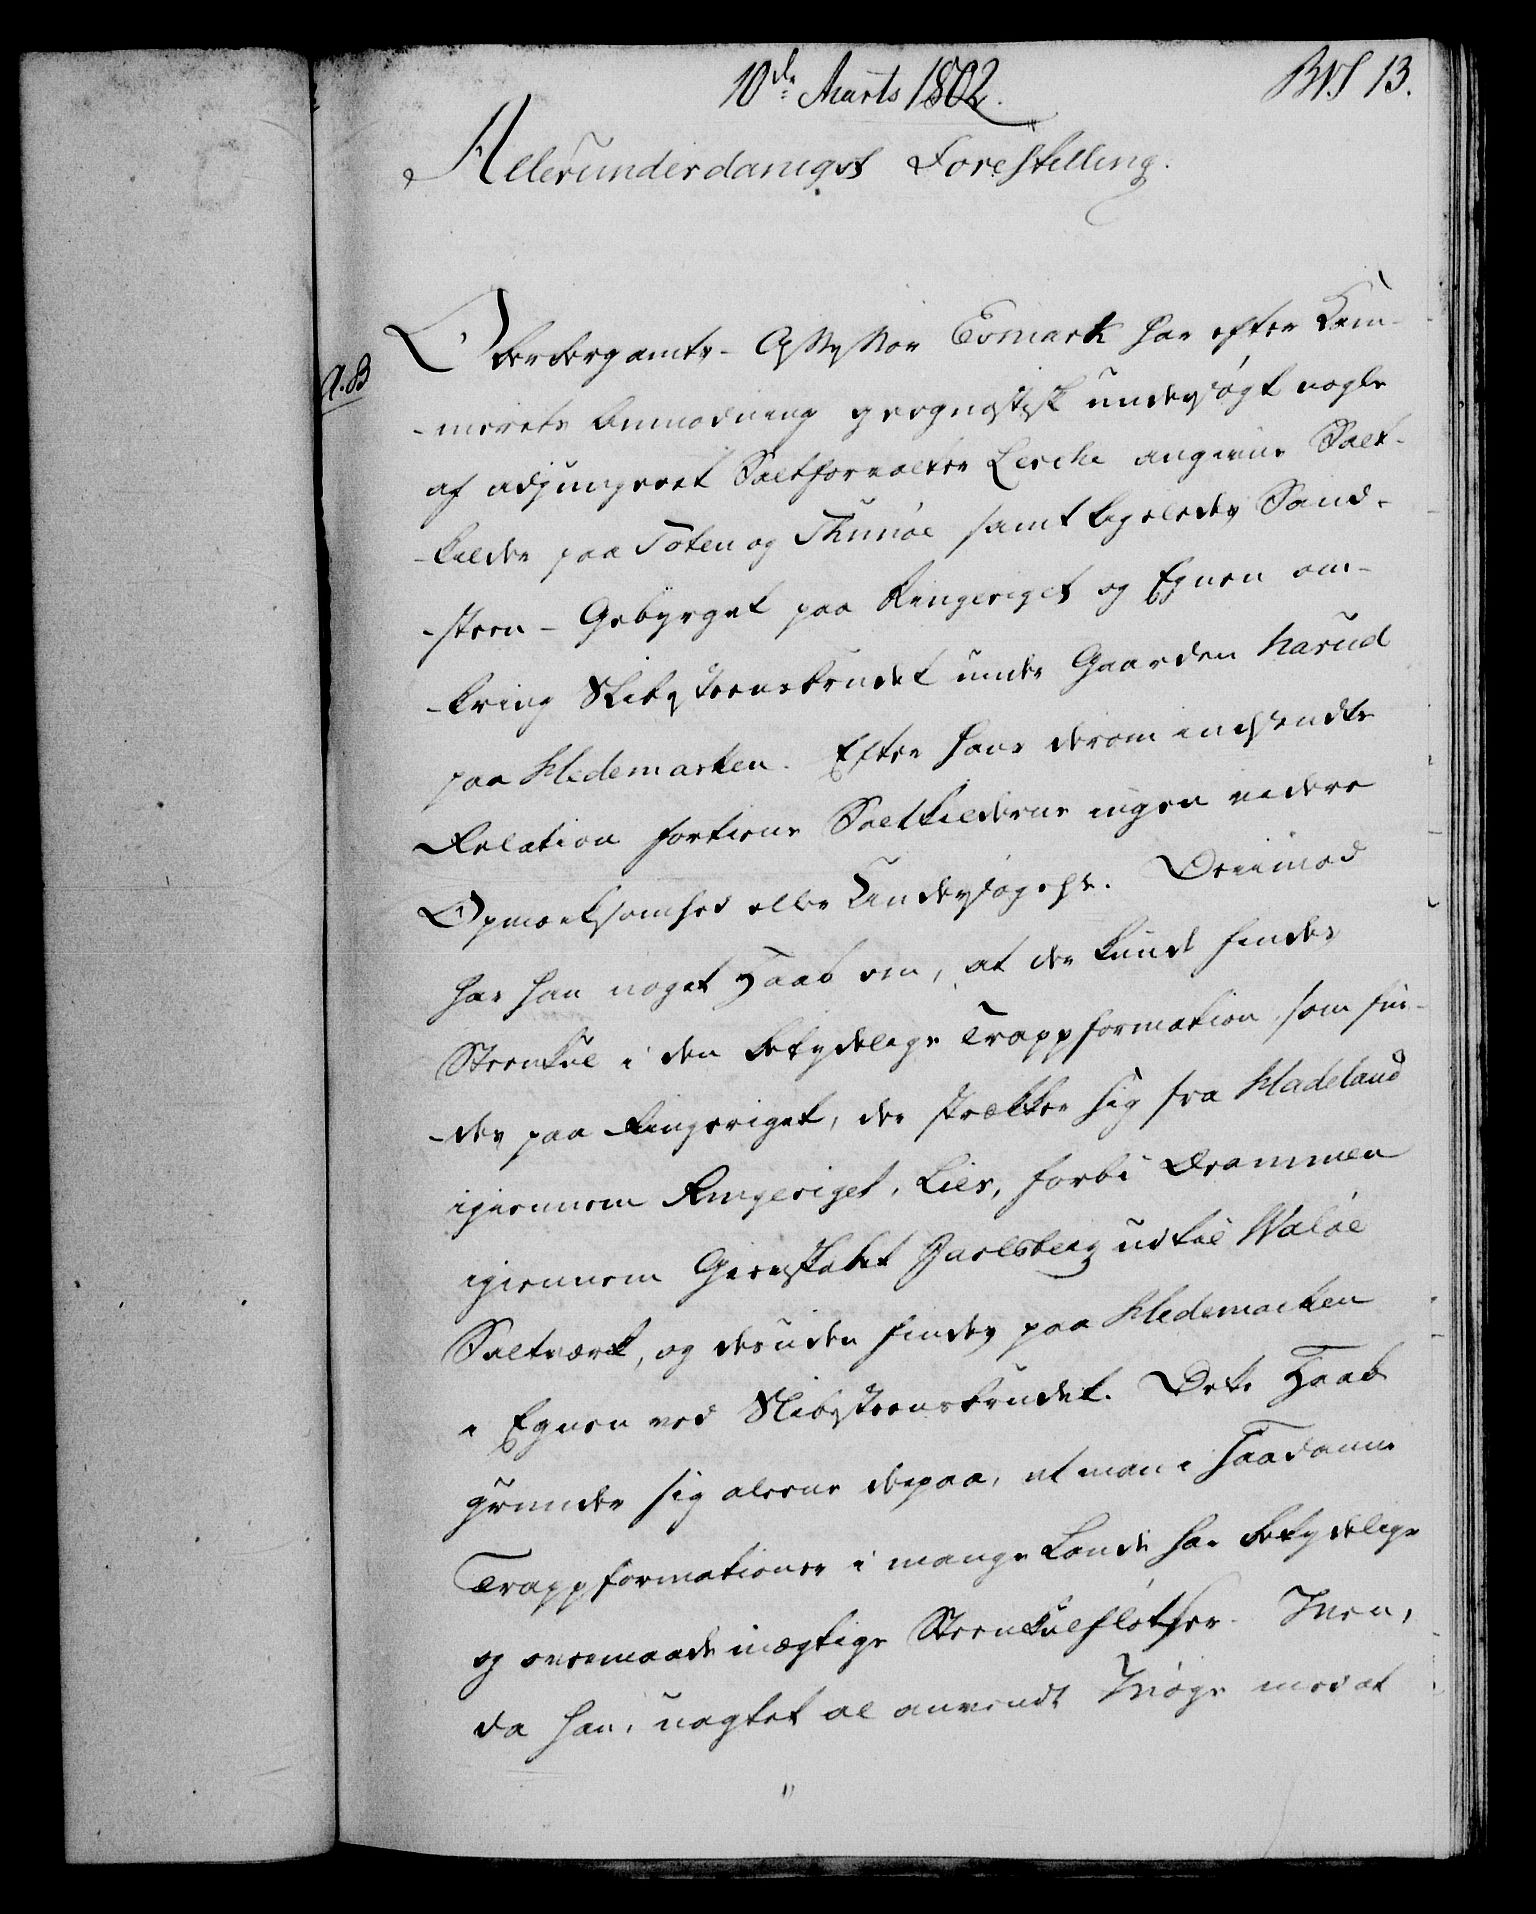 10de Marts 1802.
BVS 13.
Allerunderdanigst Forestilling.
N.B
Oberbergamts-Assessor Esmark har efter Kam-
-merets Anmodning geognostisk undersøgt nogle
af adjungeret Saltforvalter Lerche angivne Salt-
-kilder paa Toten og Thunöe samt ligeledes Sand-
-steen-Gebyrget paa Ringeriget og Egnen om-
-kring Slibesteensbrudet under Gaarden Narud
paa Hedemarken. Efter hans derom indsendte
Relation fortiene Saltkilderne ingen videre
Opmærksomhed eller Undersøgelse. Derimod
har han noget Haab om, at der kunde findes
Steenkul i den betydelige Trappformation, som fin-
-des paa Ringeriget, der strækker sig fra Hadeland
igiennem Ringeriget, Lier, forbi Drammen
igiennem Grevskabet Jarlsberg ud til Waløe
Saltværk, og desuden findes paa Hedemarken
i Egnen ved Slibesteensbrudet. Dette Haab
grunder sig alene derpaa, at man i saadanne
Trappformationer i mange Lande har betydelige
og overmaade mægtige Steenkulflötser. Men,
da han, uagtet al anvendt Möye med at